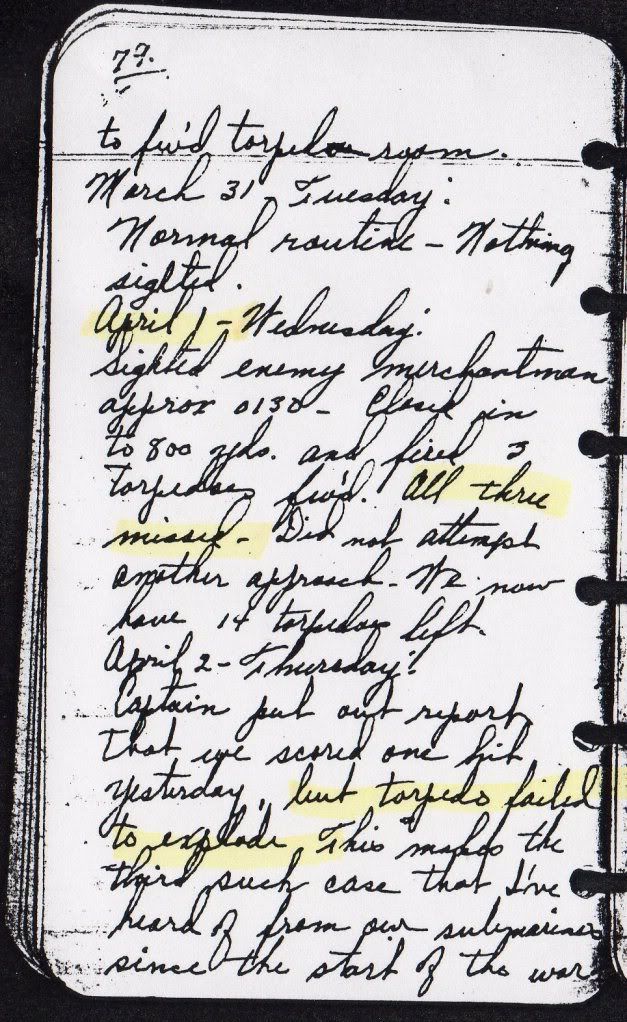 77.
to fw'd torpedo room.
March 31, Tuesday:
Normal routine - Nothing
sighted.
April 1 - Wednesday:
Sighted enemy merchantman
approx 0130 - Closed in
to 800 yds. and fired 3
torpedoes fw'd. All three
missed - Did not attempt
another approach - We now
have 14 torpedoes left.
April 2 - Thursday:
Captain put out report
that we scored one hit
yesterday, but torpedo failed
to explode. This makes the
third such case that I've
heard of from our submarines
since the start of the war